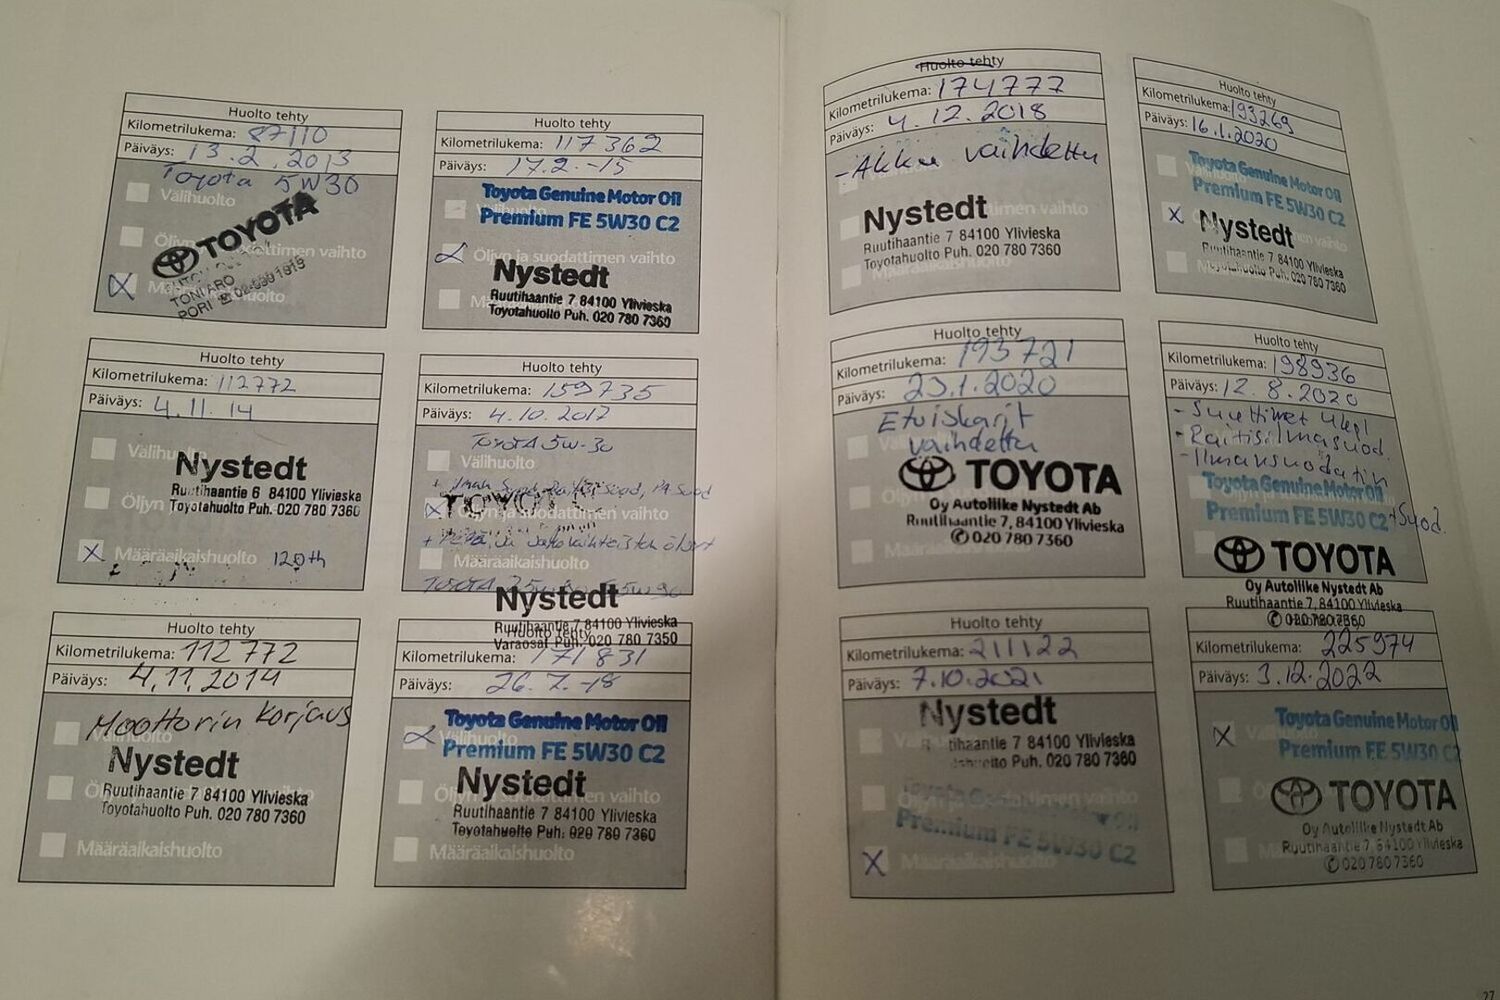 Huolto tehty
Kilometrilukema: 87110
Päiväys: 13.2.2013
Toyota 5W30
Välihuolto
TOYOTA
TONI ARO
PORI
Huolto tehty
Kilometrilukema: 112772
Päiväys: 4.11.14
Nystedt
Ruutihaantie 6 84100 Ylivieska
Toyotahuolto Puh. 020 780 7360
Määräaikaishuolto 120th
Huolto tehty
Kilometrilukema: 112772
Päiväys: 4.11.2014
Moottorin korjaus
Nystedt
Ruutihaantie 7 84100 Ylivieska
Toyotahuolto Puh. 020 780 7360
Määräaikaishuolto
Huolto tehty
Kilometrilukema: 117362
Päiväys: 17.2.-15
Toyota Genuine Motor Oil
Premium FE 5W30 C2
Öljyn ja suodattimen vaihto
Nystedt
Ruutihaantie 7 84100 Ylivieska
Toyotahuolto Puh. 020 780 7360
Huolto tehty
Kilometrilukema: 159735
Päiväys: 4.10.2017
TOYOTA 5w-30
Välihuolto
Öljyn ja suodattimen vaihto
Määräaikaishuolto
Nystedt
Ruutihaantie 7 84100 Ylivieska
Varaosat Puh. 020 780 7350
Huolto tehty
Kilometrilukema: 171831
Päiväys: 26.7.-18
Toyota Genuine Motor Oil
Välihuolto
Premium FE 5W30 C2
Nystedt
Öljyn ja suodattimen vaihto
Ruutihaantie 7 84100 Ylivieska
Toyotahuolto Puh. 020 780 7360
Määräaikaishuolto
Huolto tehty
Kilometrilukema: 174777
Päiväys: 4.12.2018
- Akku vaihdettu
Nystedt
Ruutihaantie 7 84100 Ylivieska
Toyotahuolto Puh. 020 780 7360
Huolto tehty
Kilometrilukema: 193721
Päiväys: 23.1.2020
Etuiskarit
vaihdettu
TOYOTA
Oy Autoliike Nystedt Ab
Ruutihaantie 7, 84100 Ylivieska
020 780 7360
Määräaikaishuolto
Huolto tehty
Kilometrilukema: 211122
Päiväys: 7.10.2021
Nystedt
Ruutihaantie 7 84100 Ylivieska
Puh. 020 780 7360
Premium FE 5W30 C2
Määräaikaishuolto
Huolto tehty
Kilometrilukema: 193269
Päiväys: 16.1.2020
Toyota Genuine Motor Oil
Premium FE 5W30 C2
Nystedt
Ruutihaantie 7 84100 Ylivieska
Toyotahuolto Puh. 020 780 7360
Huolto tehty
Kilometrilukema: 198936
Päiväys: 12.8.2020
- Raitisilmasuod.
- Ilmansuodatin
Toyota Genuine Motor Oil
Premium FE 5W30 C2 + Suod.
TOYOTA
Oy Autoliike Nystedt Ab
Ruutihaantie 7, 84100 Ylivieska
020 780 7360
Kilometrilukema: 225974
Päiväys: 3.12.2022
Toyota Genuine Motor Oil
Premium FE 5W30 C2
TOYOTA
Oy Autoliike Nystedt Ab
Ruutihaantie 7, 84100 Ylivieska
020 780 7360
27